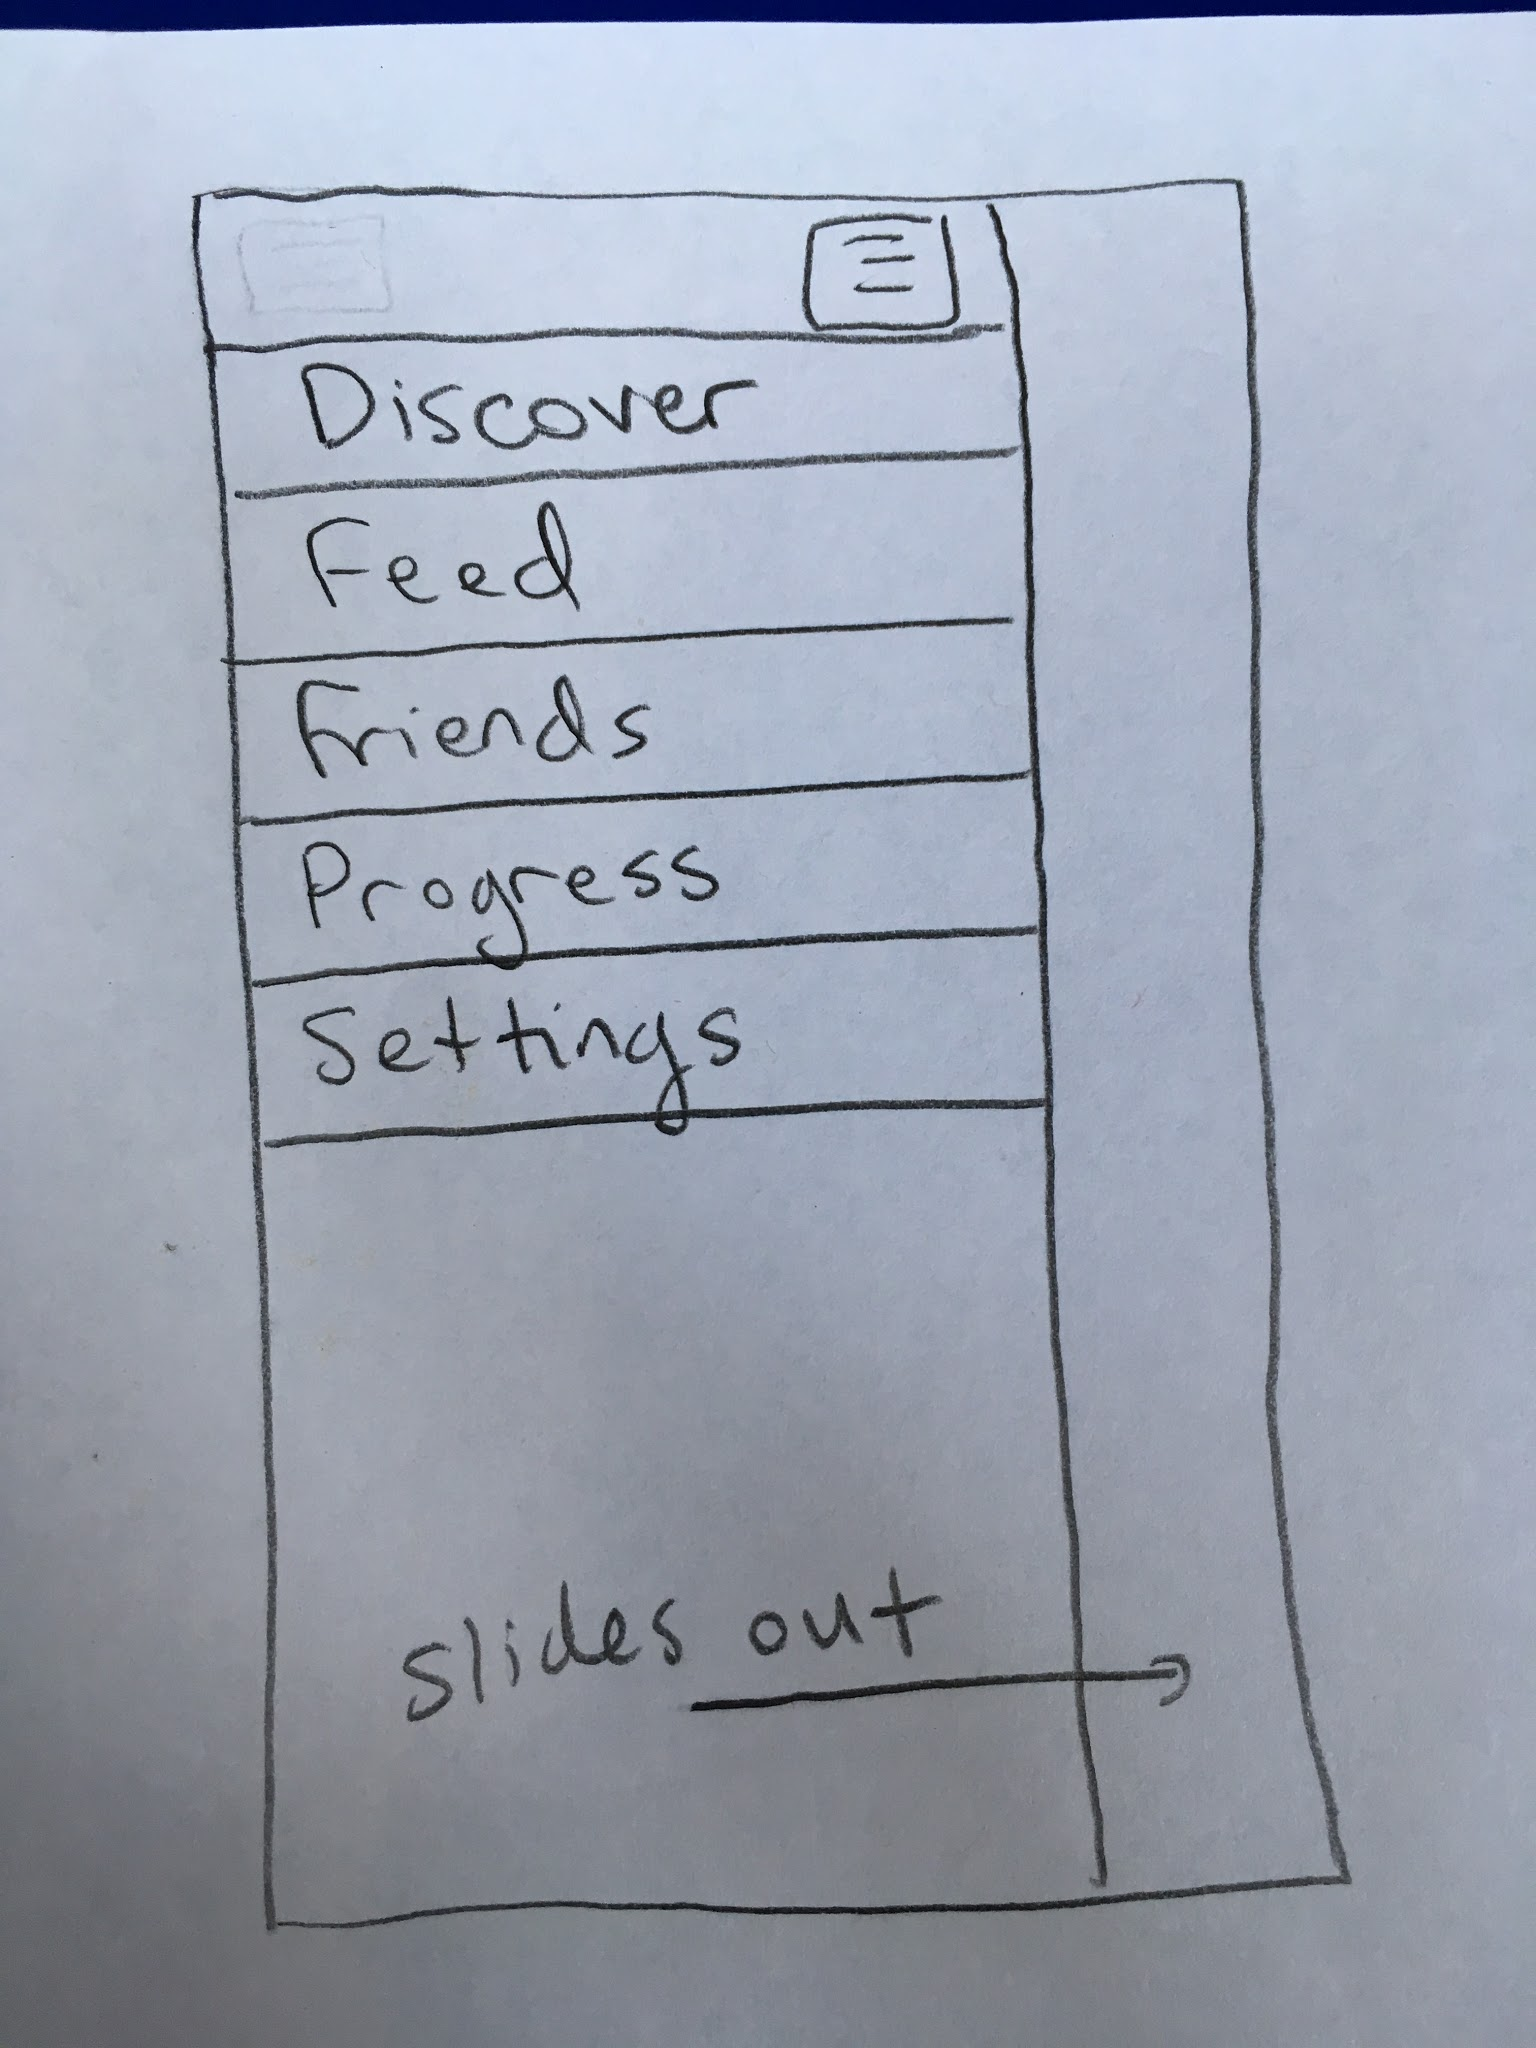 Discover
Feed
Friends
Progress
Settings
slides out